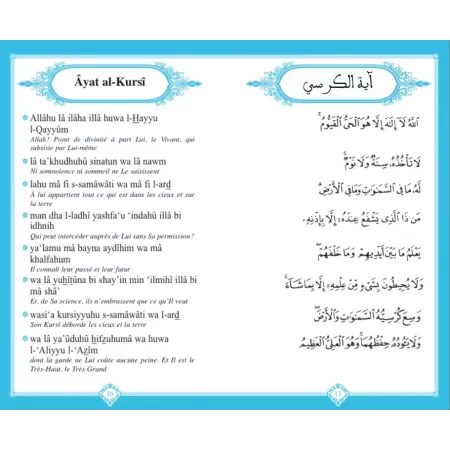 Âyat al-Kursî
Allâhu lâ ilâha illâ huwa l-Hayyu
l-Qayyûm
Allah! Point de divinité à part Lui, le Vivant, qui
subsiste par Lui-même
lâ ta'khudhuhû sinatun wa lâ nawm
Ni somnolence ni sommeil ne Le saisissent
lahu mâ fi s-samâwâti wa mâ fi l-ard
À lui appartient tout ce qui est dans les cieux et sur
la terre
man dha l-ladhî yashfa‘u ‘indahû illâ bi
idhnih
Qui peut intercéder auprès de Lui sans Sa permission ?
ya‘lamu mâ bayna aydîhim wa mâ
khalfahum
Il connaît leur passé et leur futur
wa lâ yuhîtûna bi shay'in min ‘ilmihî illâ bi
mâ shâ'
Et, de Sa science, ils n'embrassent que ce qu'Il veut
wasi‘a kursiyyuhu s-samâwâti wa l-ard
Son Kursî déborde les cieux et la terre
wa lâ ya'ûduhû hifzuhumâ wa huwa
l-‘Aliyyu l-‘Azîm
dont la garde ne Lui coûte aucune peine. Et Il est le
Très-Haut, le Très Grand
10
آية الكرسي
اللَّهُ لَآ إِلَٰهَ إِلَّا هُوَ ٱلْحَىُّ ٱلْقَيُّومُ ۚ
لَا تَأْخُذُهُۥ سِنَةٌ وَلَا نَوْمٌ ۚ
لَّهُۥ مَا فِى ٱلسَّمَٰوَٰتِ وَمَا فِى ٱلْأَرْضِ ۗ
مَن ذَا ٱلَّذِى يَشْفَعُ عِندَهُۥٓ إِلَّا بِإِذْنِهِۦ ۚ
يَعْلَمُ مَا بَيْنَ أَيْدِيهِمْ وَمَا خَلْفَهُمْ ۖ
وَلَا يُحِيطُونَ بِشَىْءٍ مِّنْ عِلْمِهِۦٓ إِلَّا بِمَا شَآءَ ۚ
وَسِعَ كُرْسِيُّهُ ٱلسَّمَٰوَٰتِ وَٱلْأَرْضَ ۖ
وَلَا يَـُٔودُهُۥ حِفْظُهُمَا ۚ وَهُوَ ٱلْعَلِىُّ ٱلْعَظِيمُ
11